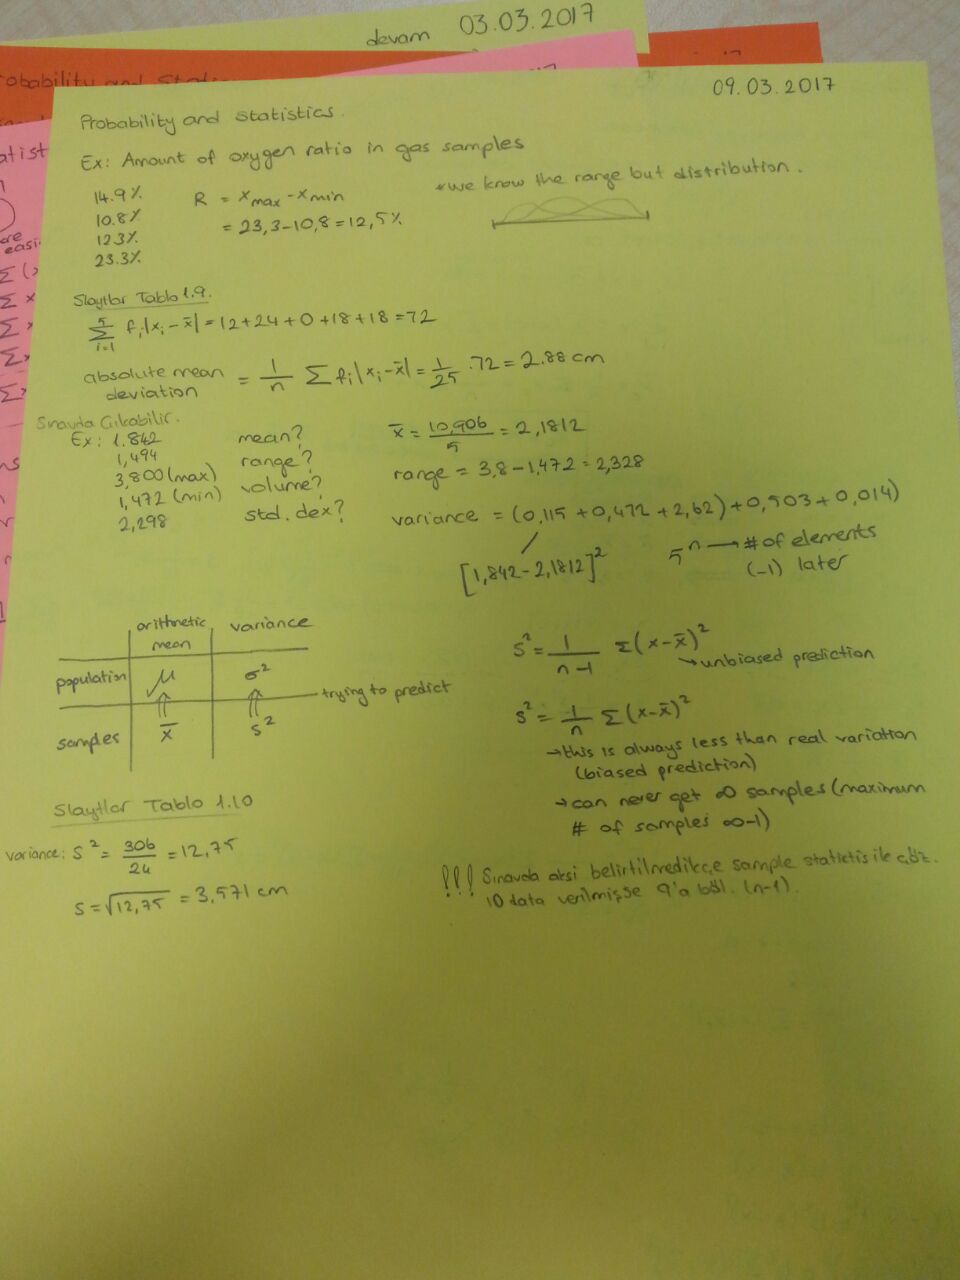 devam 03.03.2017
09.03.2017
Probability and statistics.
Ex: Amount of oxygen ratio in gas samples
14.9%
10.8%
12.3%
23.3%
R = x max - x min
= 23,3-10,8=12,5%
*we know the range but distribution.
Slaytlar Tablo 1.9.
5 Σ i=1 fi|xi-x̄|=12+24+0+18+18=72
absolute mean deviation = 1/n Σ fi|xi-x̄|= 1/25 .72=2.88 cm
Sınavda Çıkabilir.
Ex: 1.842
1,494
3,800(max)
1,472(min)
2,298
mean?
range?
volume?
std. dex?
x̄ = 10,906/5 = 2,1812
range = 3,8-1,472=2,328
variance = (0,115+0,472+2,62)+0,503+0,014)
[1,842-2,1812]²
5 n → # of elements
(-1) later
arithmetic mean variance
population μ σ²
trying to predict
samples x̄ s²
s²= 1/n-1 Σ(x-x̄)²
→unbiased prediction
s²= 1/n Σ(x-x̄)²
→this is always less than real variation
(biased prediction)
→can never get ∞ samples (maximum
# of samples ∞-1)
Slaytlar Tablo 1.10
variance: s²= 306/24 =12,75
s=√12,75 = 3,571 cm
!!! Sınavda aksi belirtilmedikçe sample statictis ile çöz.
10 data verilmişse 9'a böl. (n-1).